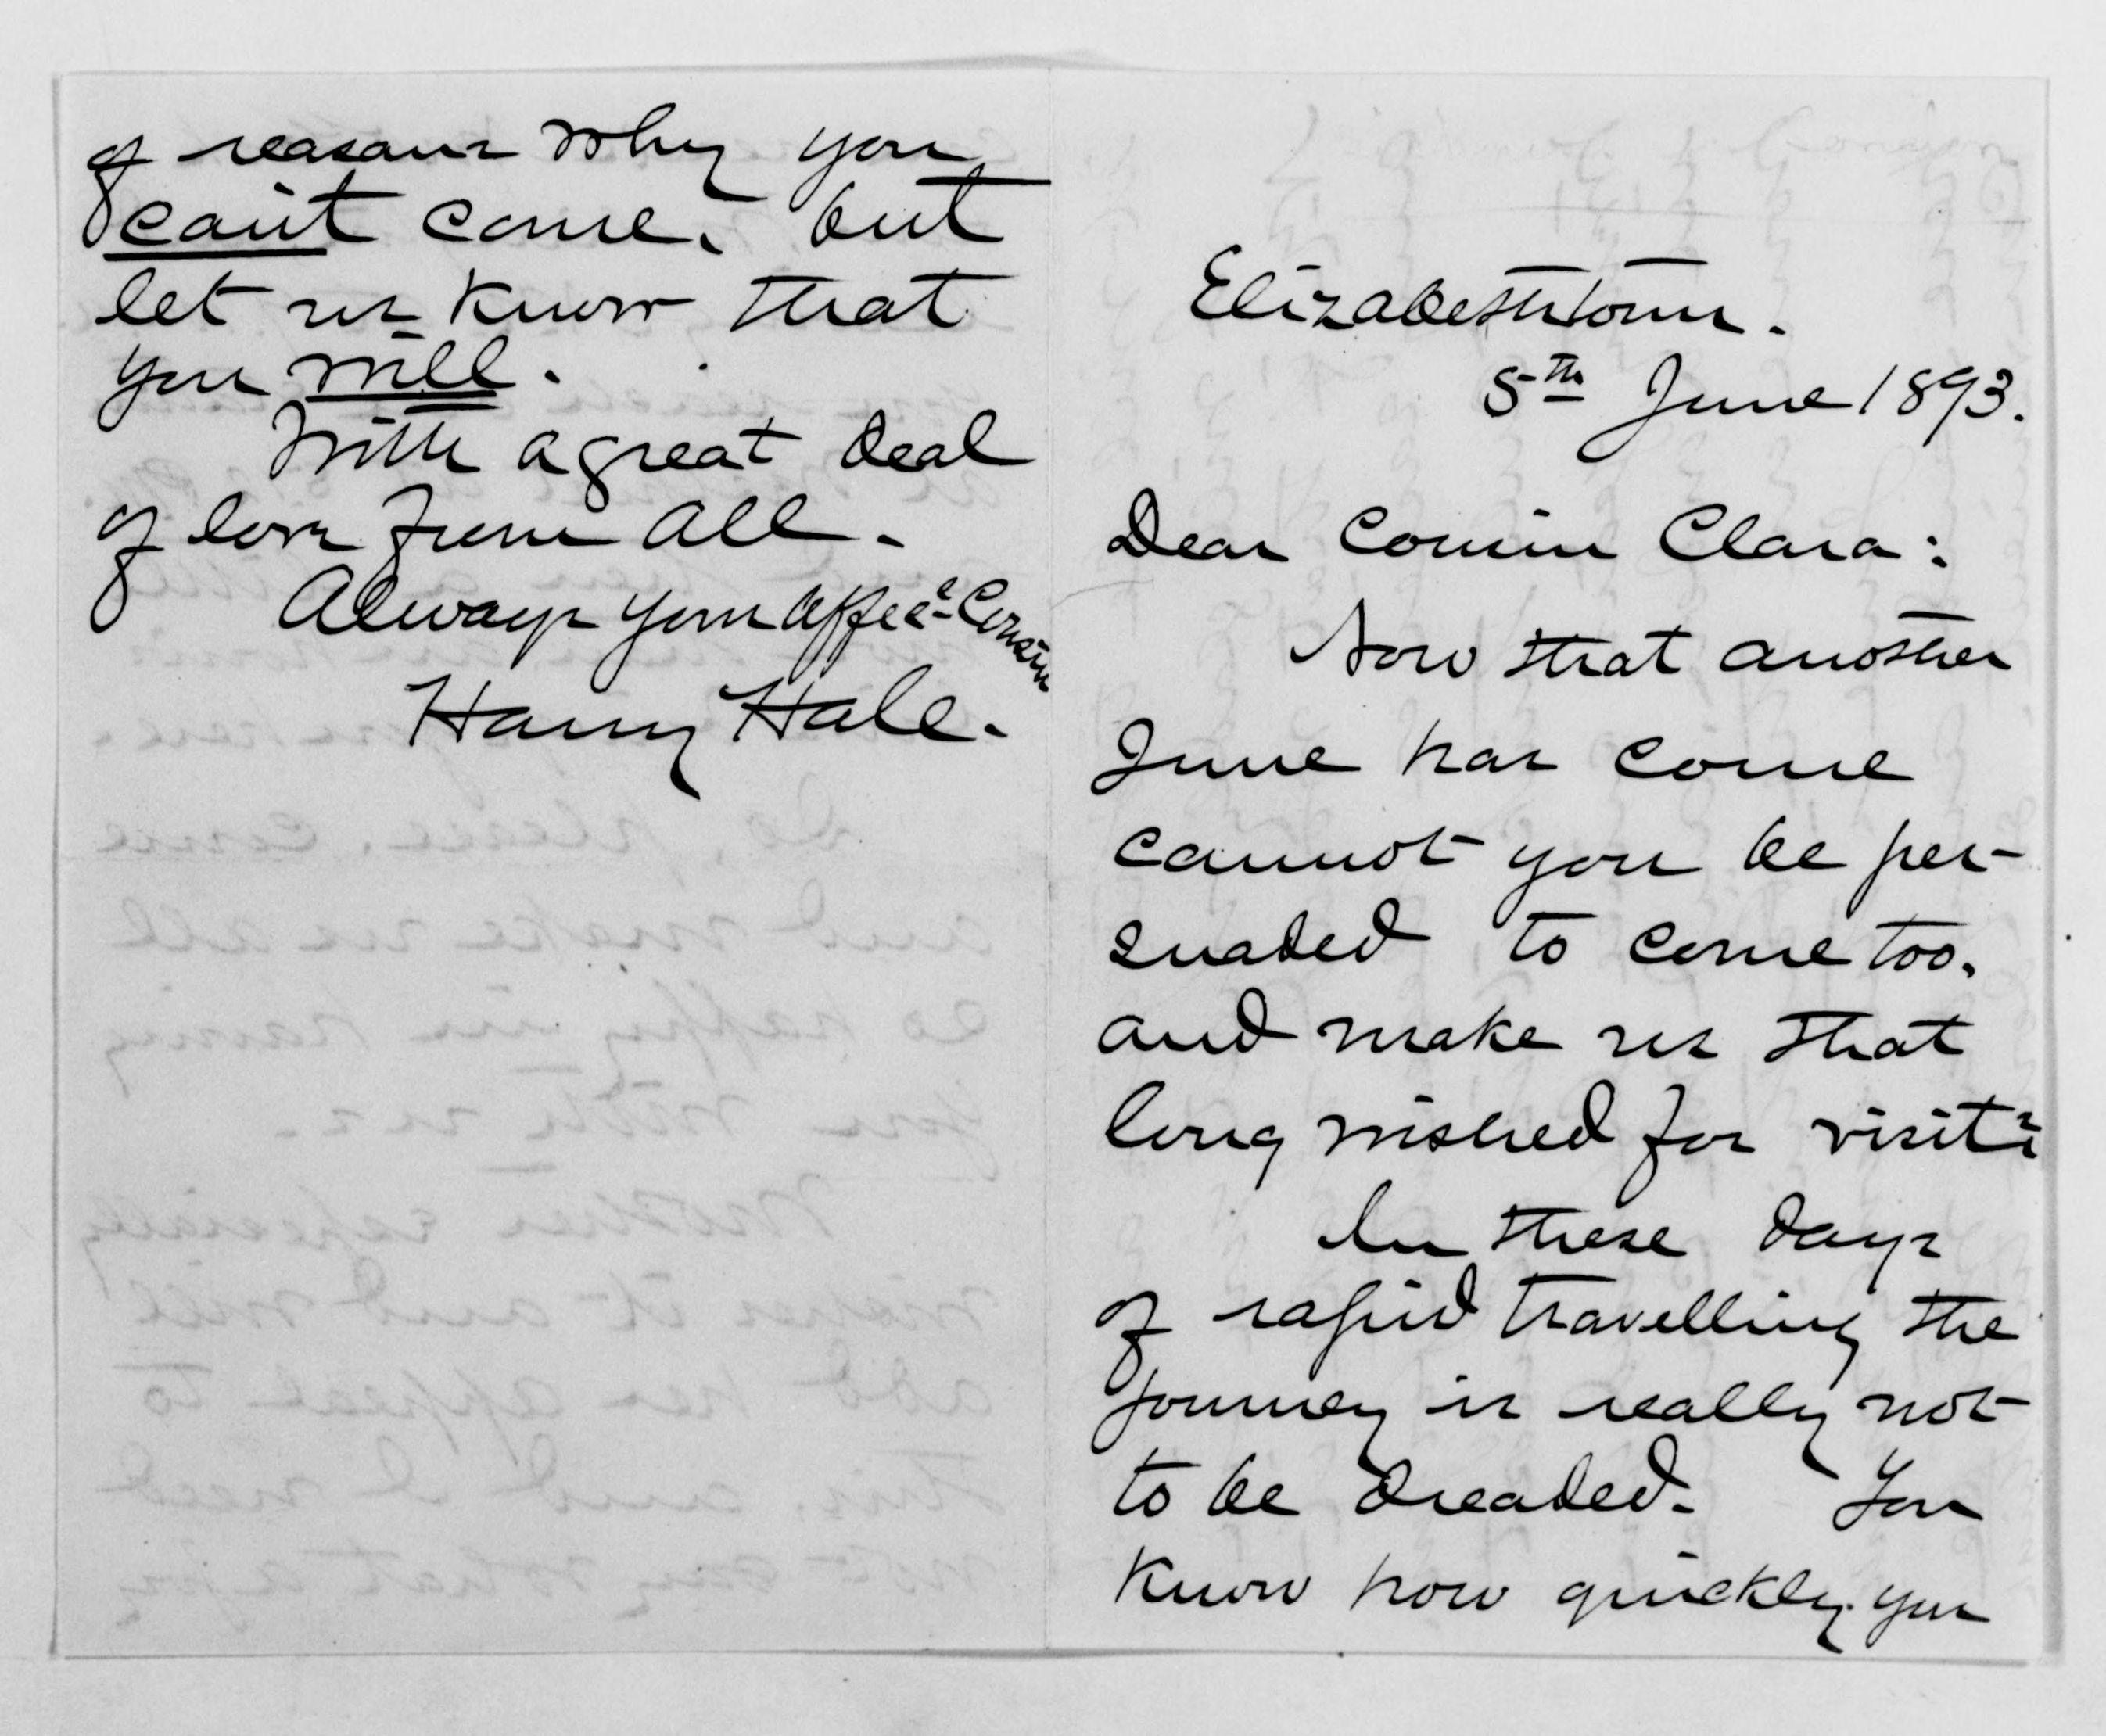 of reasons why you
can't come, but
let us know that
you will.
With a great deal
of love from all.
Always your affec^te Cousin
Harry Hale.
Elizabethtown.
5th June 1893.
Dear Cousin Clara:
Now that another
June has come
cannot you be per-
suaded to come too,
and make us that
long wished for visit?
In these days
of rapid travelling the
journey is really not
to be dreaded. You
know how quickly you